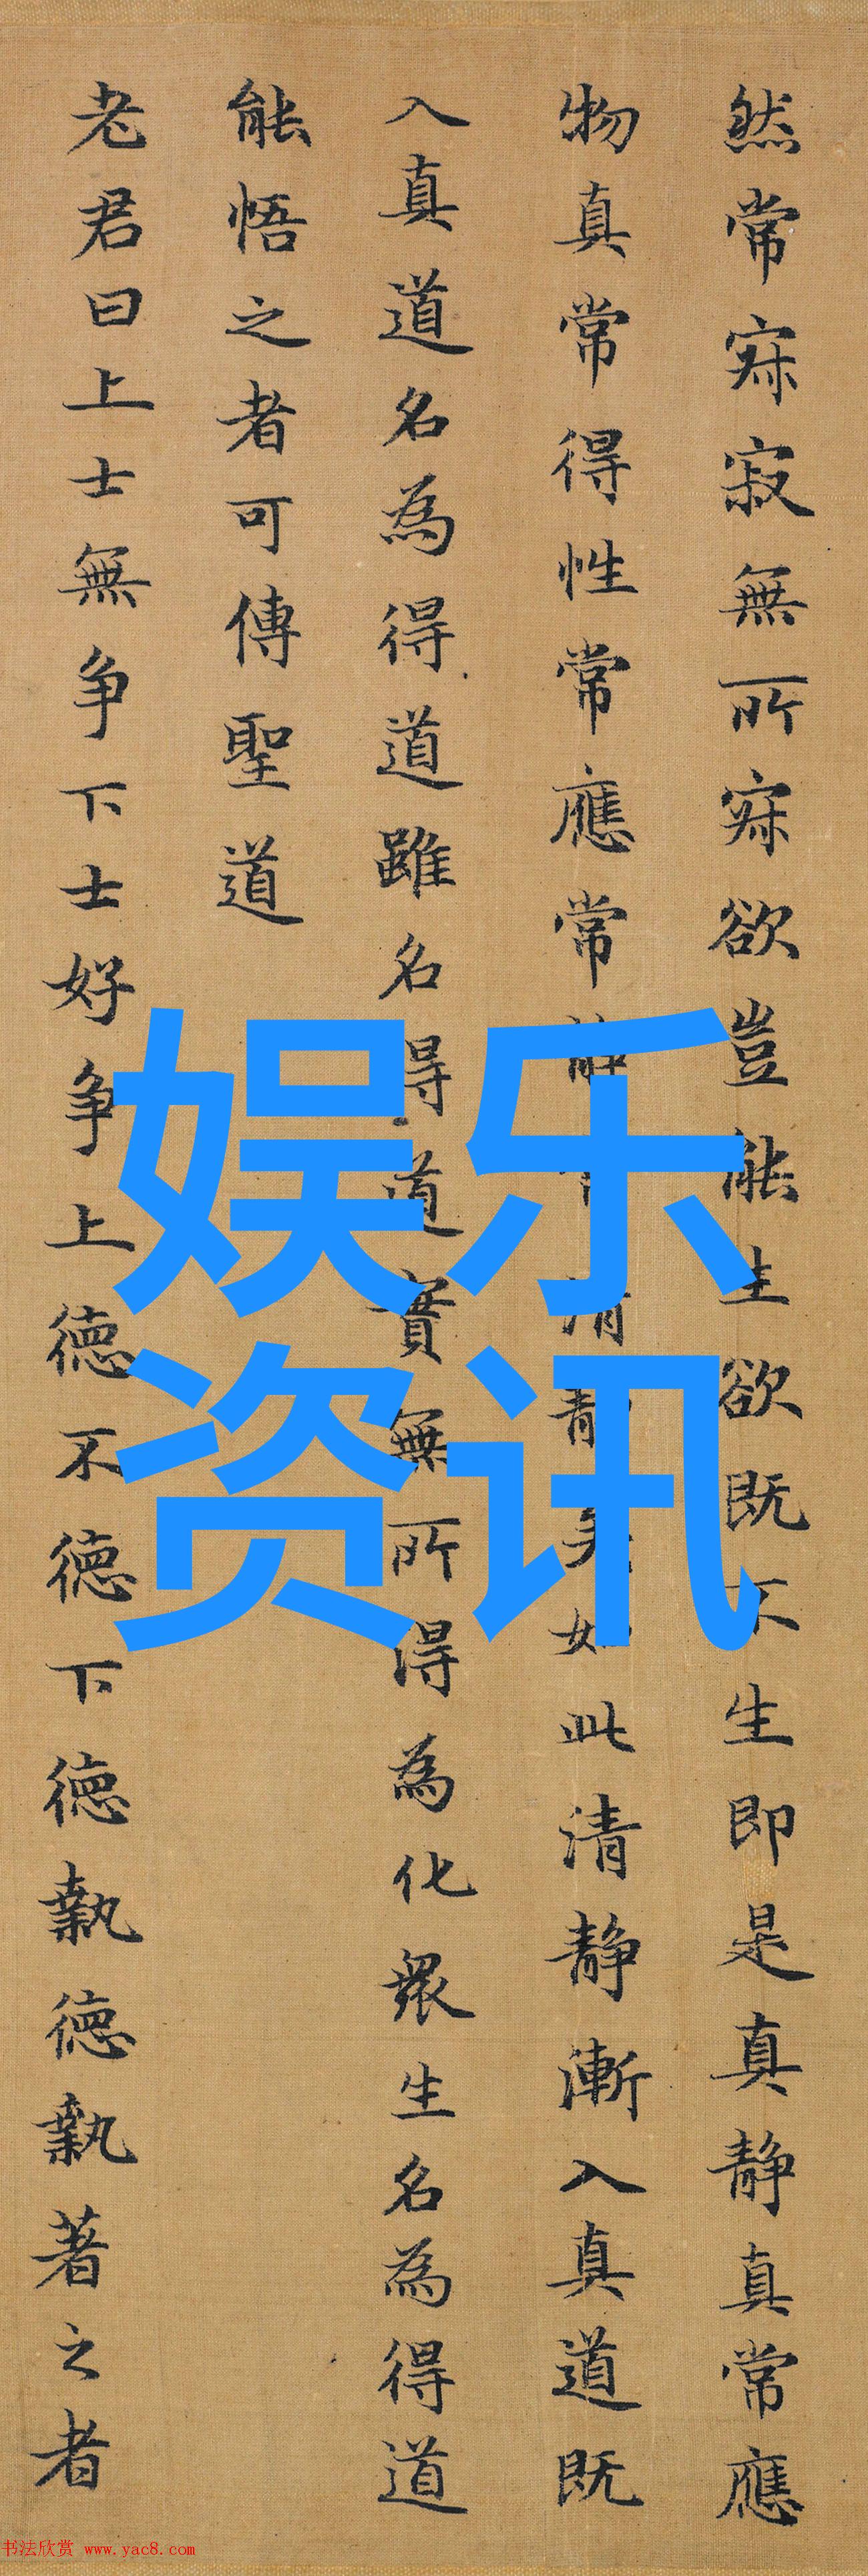 然常寂寂無所寂欲豈能生欲既不生即是真静真常應
物真常得性常應常静常清静矣如此清静漸入真道既
入真道名為得道雖名得道實無所得為化衆生名為得道
能悟之者可傳聖道
老君曰上士無争下士好争上徳不徳下徳執徳執著之者
娱乐
资讯
书法欣赏 www.yac8.com